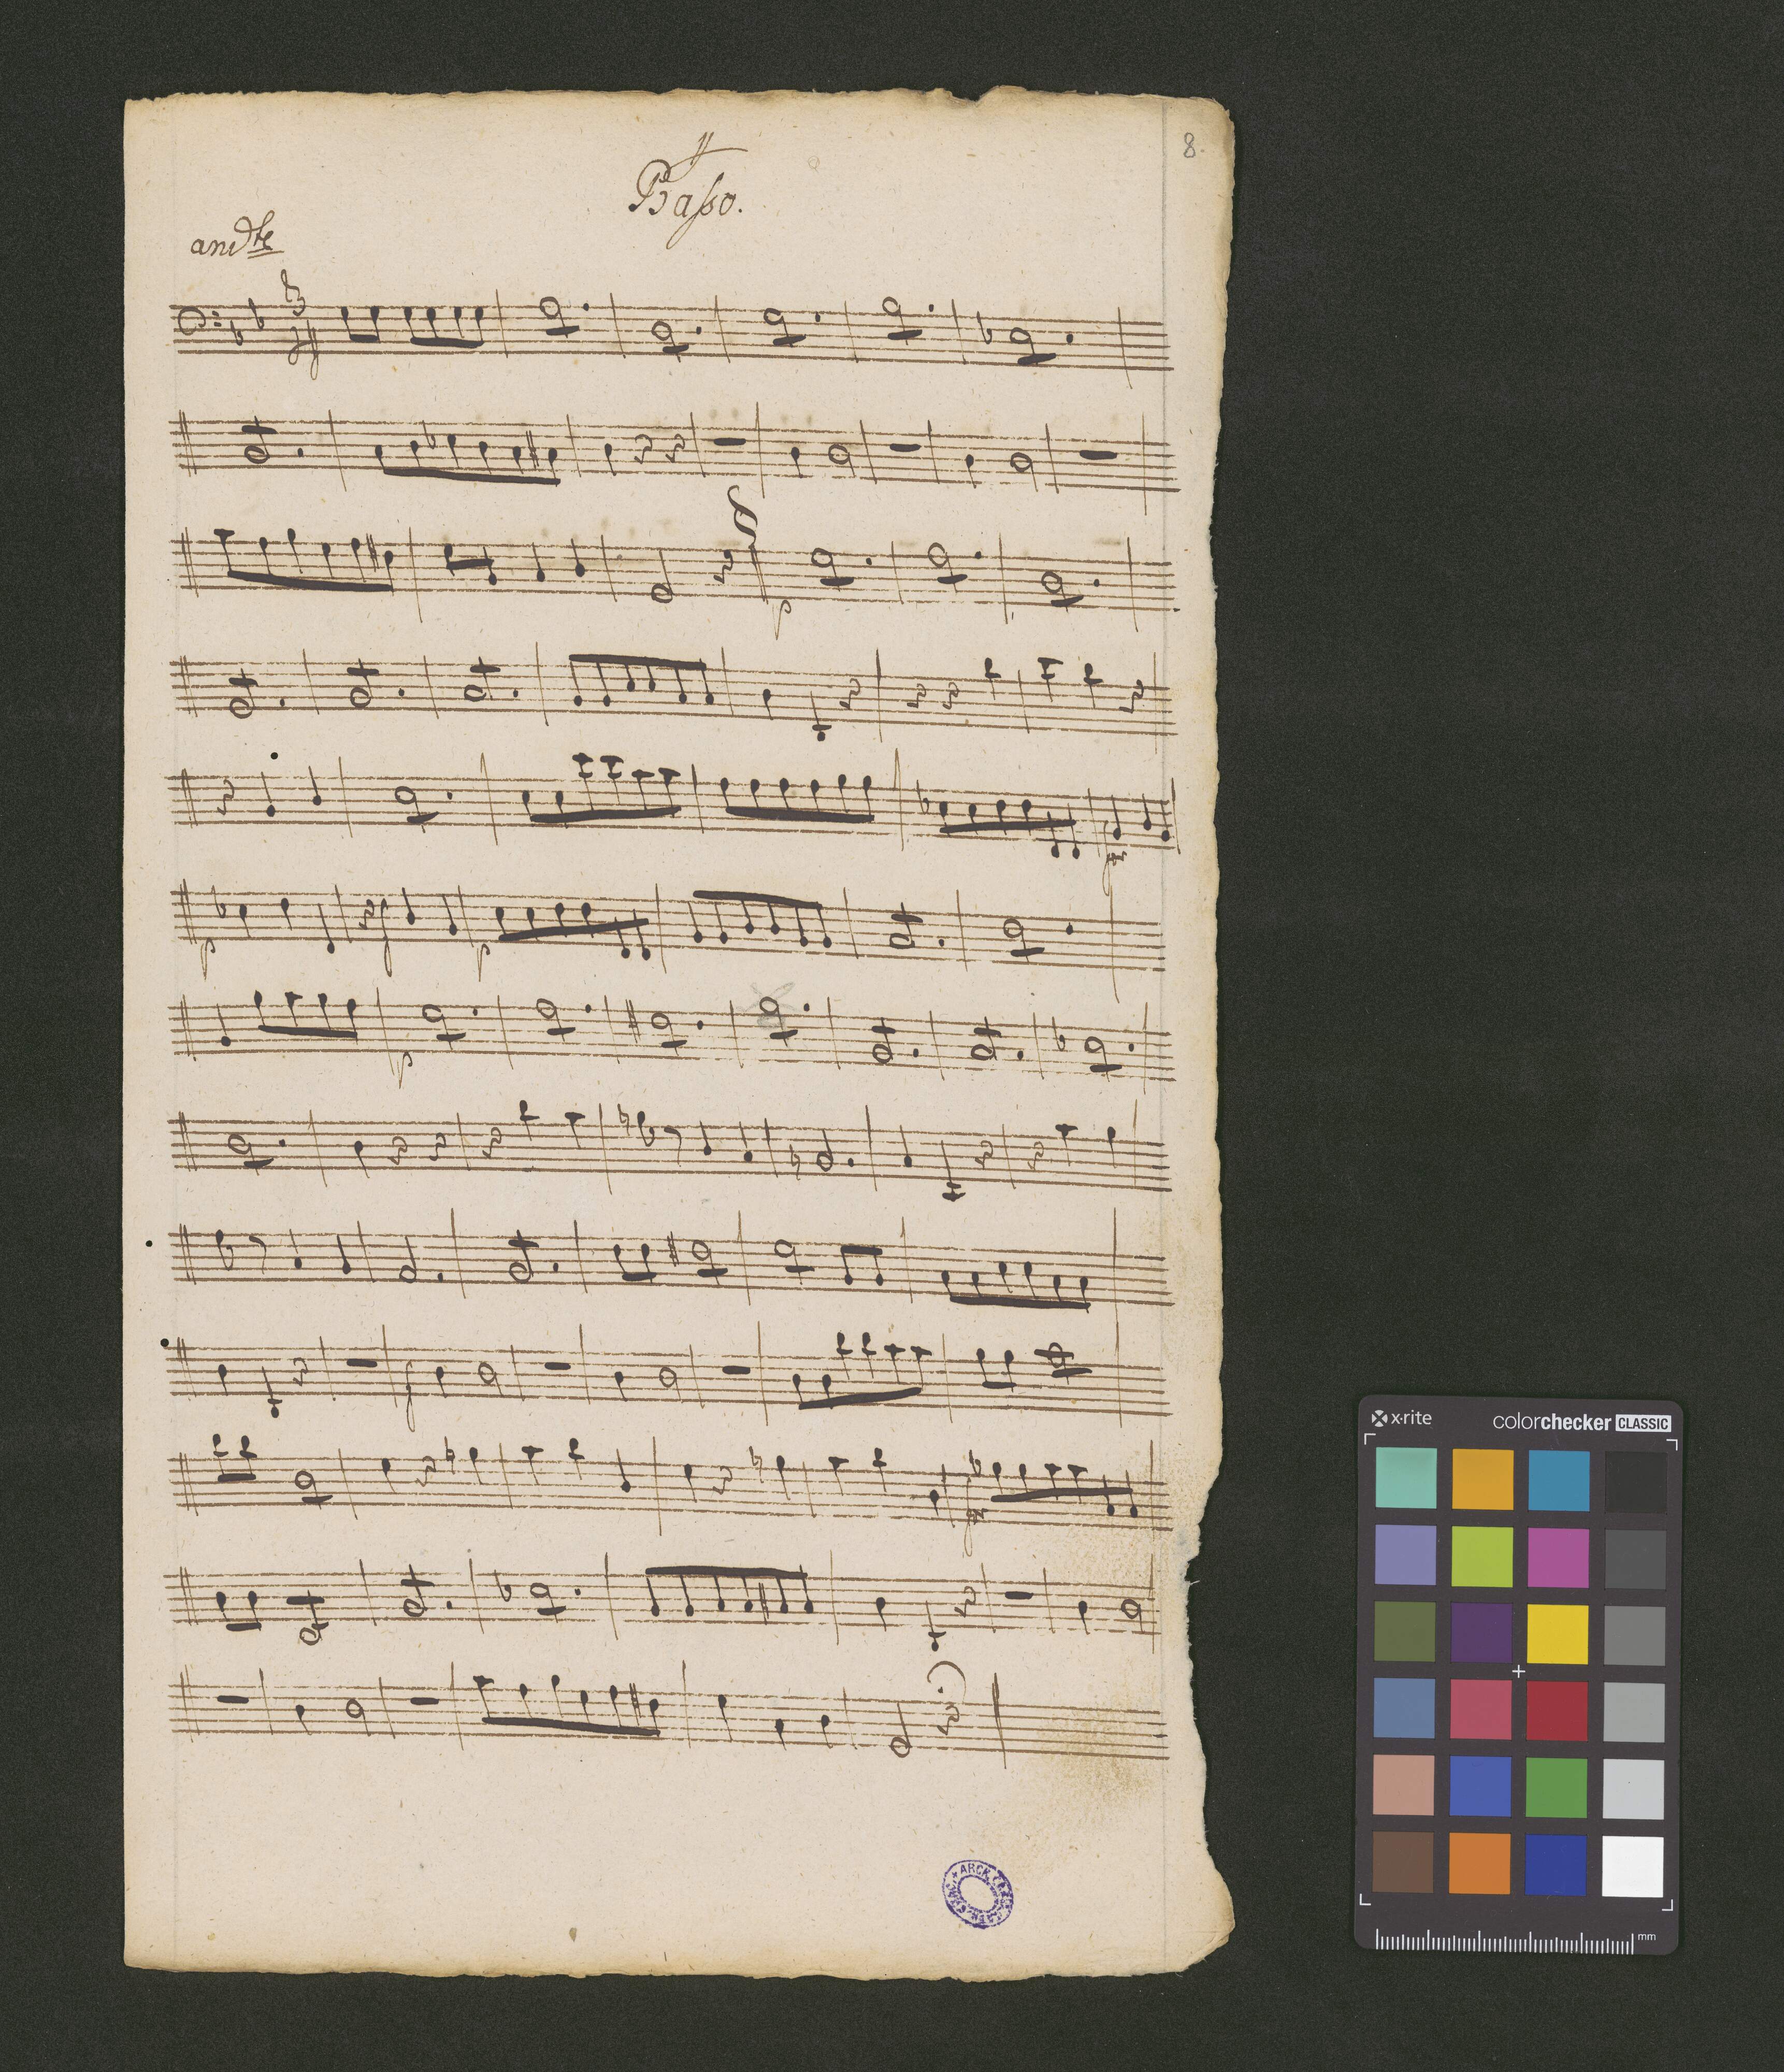 8.
Baſso.
andte
3
p
p
p
p
p
x-rite
colorchecker CLASSIC
mm